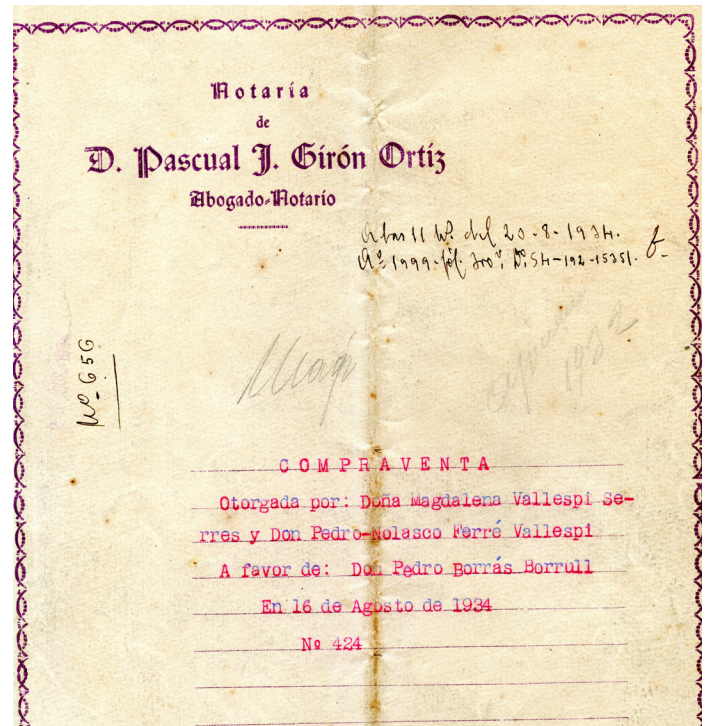 Notaría
de
D. Pascual J. Girón Ortiz
Abogado-Notario
A las 11 h. del 20-8-1934.
1999
Nº 656
1932
COMPRAVENTA
Otorgada por: Doña Magdalena Vallespi Se-
rres y Don Pedro-Nolasco Ferré Vallespi
A favor de: Don Pedro Borrás Borrull
En 16 de Agosto de 1934
Nº 424